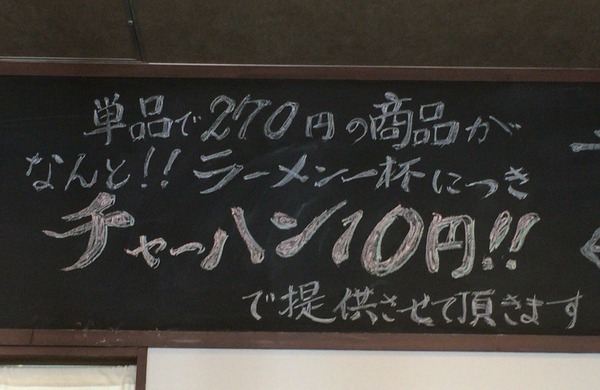 単品で270円の商品が
なんと!!ラーメン一杯につき
チャーハン10円!!
で提供させて頂きます